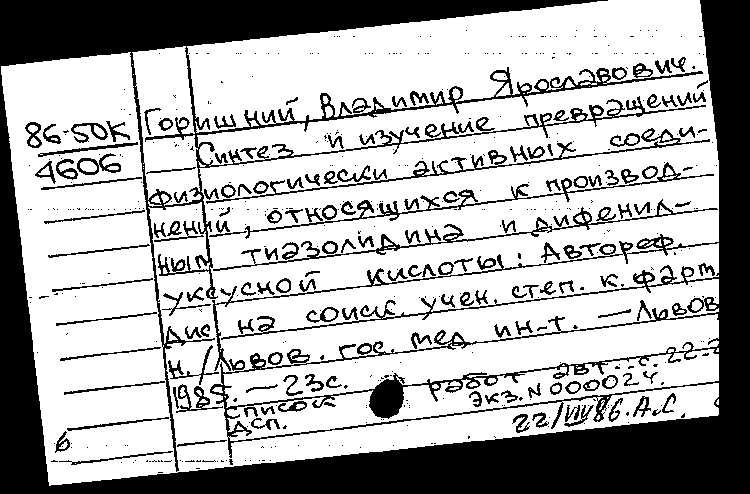 86-50К
4606
Горишний, Владимир Ярославович.
Синтез и изучение превращений
физиологически активных соеди-
нений, относящихся к производ-
ным тиазолидина и дифенил-
уксусной кислоты: Автореф.
дис. на соиск. учен. степ. к. фарм.
н. /Львов. гос. мед ин-т. — Львов
1985. — 23с.
список работ авт.: с. 22-2
дсп. экз. N 000024.
6
22/VIV86. А.С.